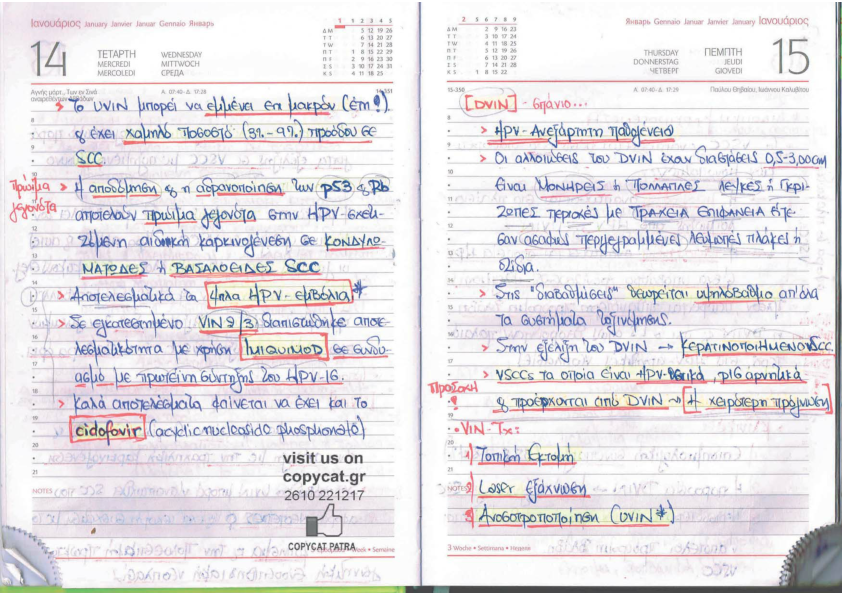 Ιανουάριος January Janvier Januar Gennaio Январь
14
ΤΕΤΑΡΤΗ WEDNESDAY
MERCREDI MITTWOCH
MERCOLEDI СРЕДА
1 1 2 3 4 5
Δ M 5 12 19 26
T T 6 13 20 27
T W 7 14 21 28
Π T 1 8 15 22 29
Π F 2 9 16 23 30
Σ S 3 10 17 24 31
Κ S 4 11 18 25
Α. 07:40-Δ. 17:28
14-351
> Το uVIN μπορεί να εμμένει επί μακρόν (έτη!)
& έχει χαμηλό ποσοστό (3%-9%) προόδου σε
SCC
Πρώιμα γεγονότα
> Η αποδόμηση & η αδρανοποίηση των p53 & Rb
αποτελούν πρώιμα γεγονότα στην HPV-σχετι-
ζόμενη αιδοιική καρκινογένεση σε ΚΟΝΔΥΛΩ-
ΜΑΤΩΔΕΣ ή ΒΑΣΑΛΟΕΙΔΕΣ SCC
> Αποτελεσματικά τα 4πλα HPV-εμβόλια*
> Σε εγκατεστημένο VIN 2/3 διαπιστώθηκε αποτε-
λεσματικότητα με χρήση IMIQUIMOD σε συνδυ-
ασμό με πρωτεΐνη σύντηξης του HPV-16.
> Καλά αποτελέσματα φαίνεται να έχει και το
cidofovir (acyclic nucleoside phosphonate)
NOTES
visit us on
copycat.gr
2610 221217
COPYCAT PATRA
Week • Semaine
Январь Gennaio Januar Janvier January Ιανουάριος
15
THURSDAY ΠΕΜΠΤΗ
DONNERSTAG JEUDI
ЧЕТВЕРГ GIOVEDI
2 5 6 7 8 9
Δ M 2 9 16 23
T T 3 10 17 24
T W 4 11 18 25
Π T 5 12 19 26
Π F 6 13 20 27
Σ S 7 14 21 28
Κ S 1 8 15 22
15-350
Α. 07:40-Δ. 17:29
Παύλου Θηβαίου, Ιωάννου Καλυβίτου
[DVIN] - σπάνιο...
> HPV-Ανεξάρτητη παθογένεια
> Οι αλλοιώσεις του DVIN έχουν διαστάσεις 0,5-3,00cm
Είναι ΜΟΝΗΡΕΙΣ ή ΠΟΛΛΑΠΛΕΣ λευκές ή γκρι-
ζωπές περιοχές με ΤΡΑΧΕΙΑ ΕΠΙΦΑΝΕΙΑ είτε
σαν ασαφώς περιγεγραμμένες λευκωπές πλάκες ή
οζίδια.
> Στις "διαβαθμίσεις" θεωρείται υψηλόβαθμο απ'όλα
τα συστήματα ταξινόμησης.
> Στην εξέλιξη του DVIN → ΚΕΡΑΤΙΝΟΠΟΙΗΜΕΝΟ SCC
Προσοχή!
> VSCCs τα οποία είναι HPV-θετικά, p16 αρνητικά
& προέρχονται από DVIN → Η χειρότερη πρόγνωση
• VIN-Tx:
1) Τοπική Εκτομή
NOTES
2) Laser εξάχνωση
3) Ανοσοτροποποίηση (uVIN*)
3 Woche • Settimana • Неделя